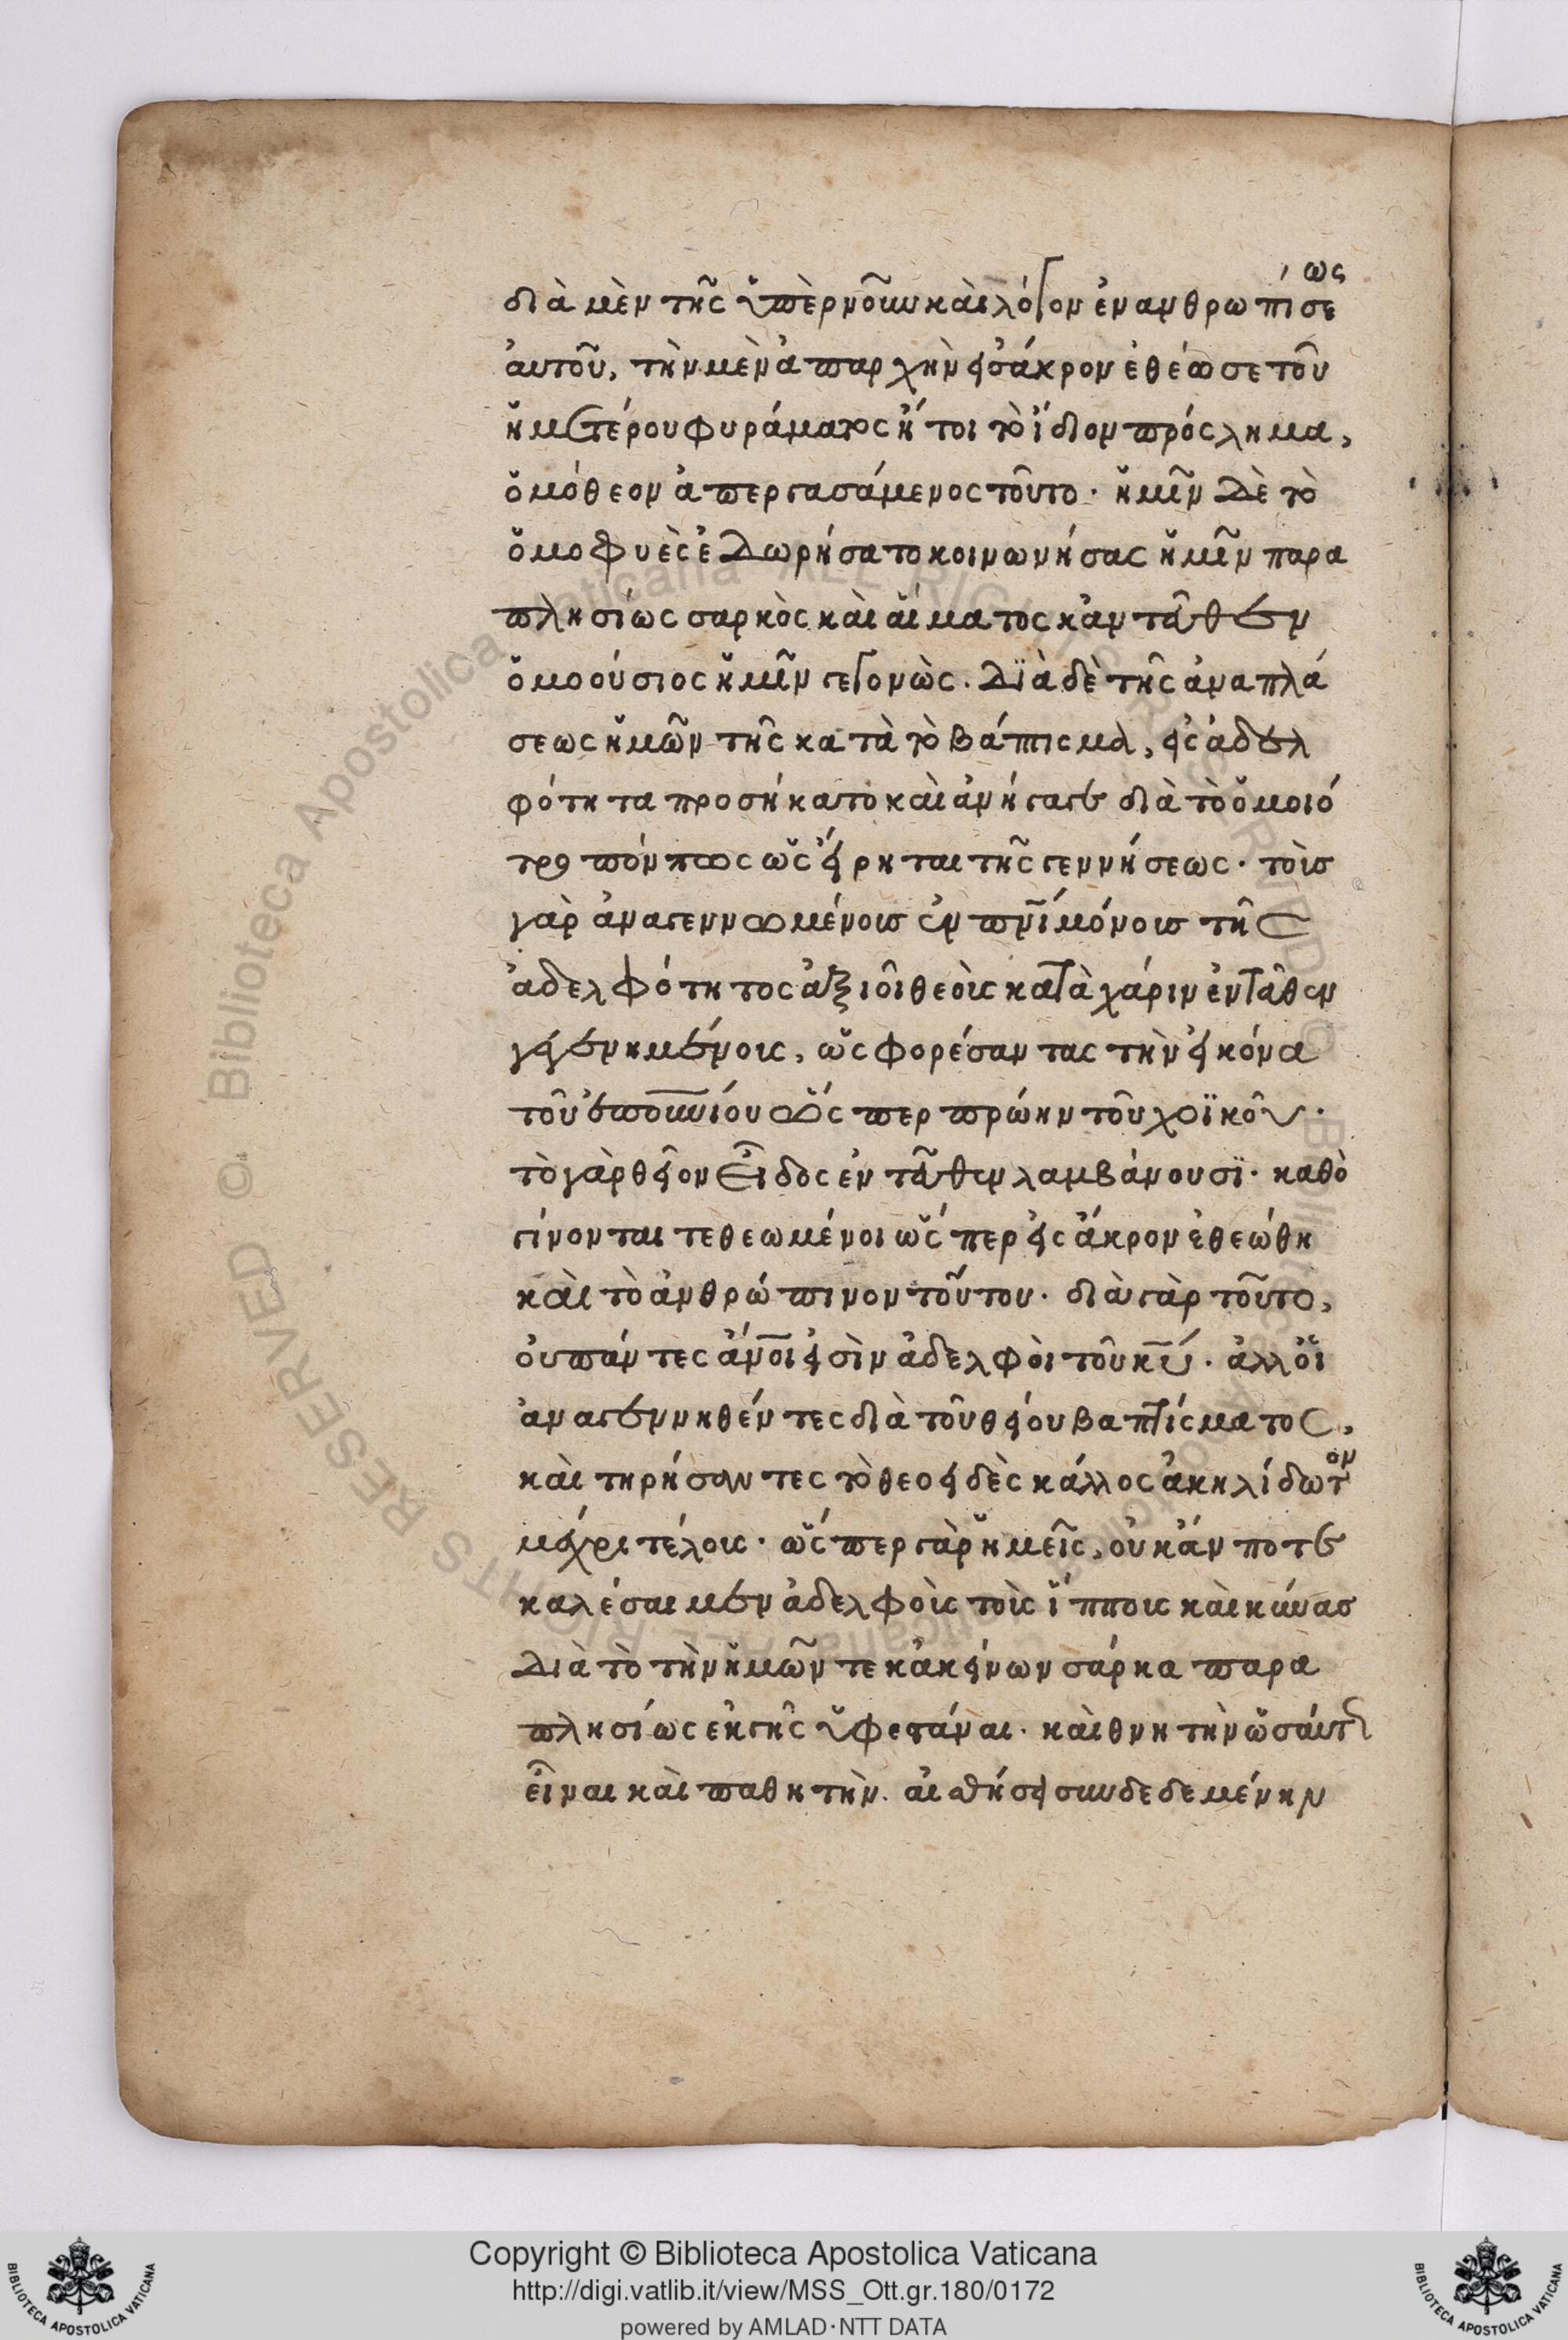 διὰ μὲν τῆς ὑπὲρ νοῦν καὶ λόγον ἐνανθρωπίσεως
ἀυτοῦ, τὴν μὲν ἀπαρχὴν εἰσάκρον ἐθέωσε τοῦ
ἡμετέρου φυράματος ἤτοι τὸ ἴδιον πρόςλημα,
ὁμόθεον ἀπεργασάμενος τοῦτο· ἡμῖν δὲ τὸ
ὁμοφυὲς ἐδωρήσατο κοινωνήσας ἡμῖν παρα
πλησίως σαρκὸς καὶ αἵματος κἀνταῦθεν
ὁμοούσιος ἡμῖν γεγονὼς. Διὰ δὲ τῆς ἀναπλά
σεως ἡμῶν τῆς κατὰ τὸ βάπτισμα, εἰς ἀδελ
φότητα προσήκατο καὶ ἀνήγαγε διὰ τὸ ὁμοιό
τροπόν πως ὡς εἴρηται τῆς γεννήσεως· τοὶς
γὰρ ἀναγεννωμένοις ἐν πνι μόνοις τῆς
ἀδελφότητος ἀξιοῖ θεοὶς κατὰ χάριν ἐνταῦθεν
γεγενημένοις, ὡς φορέσαντας τὴν εἰκόνα
τοῦ ἐπουνίου ὥς περ πρώην τοῦ χοϊκοῦ·
τὸ γὰρ θεῖον εἶδος ἐνταῦθεν λαμβάνουσϊ· καθὸ
γίνονται τεθεωμένοι ὥς περ εἰς ἄκρον ἐθεώθη
καὶ τὸ ἀνθρώπινον τούτου· διὰ γὰρ τοῦτο,
ὀυ πάντες ἄνοι εἰσὶν ἀδελφὸι τοῦ κυ· ἀλλ ὅι
ἀναγεννηθέντες διὰ τοῦ θείου βαπτίσματος,
καὶ τηρήσαντες τὸ θεοειδὲς κάλλος ἀκηλίδωτον
μέχρι τέλους· ὥς περ γὰρ ἡμεῖς, οὐκ ἄν ποτε
καλέσαιμεν ἀδελφοὺς τοὺς ἵππους καὶ κύνας
Διὰ τὸ τὴν ἡμῶν τε κἀκείνων σάρκα παρα
πλησίως ἐκ γῆς ὑφεστάναι· καὶ θνητὴν ὡσάυτως
εἶναι καὶ παθητὴν. αἰσθήσει συνδεδεμένην
Copyright © Biblioteca Apostolica Vaticana
http://digi.vatlib.it/view/MSS_Ott.gr.180/0172
powered by AMLAD·NTT DATA